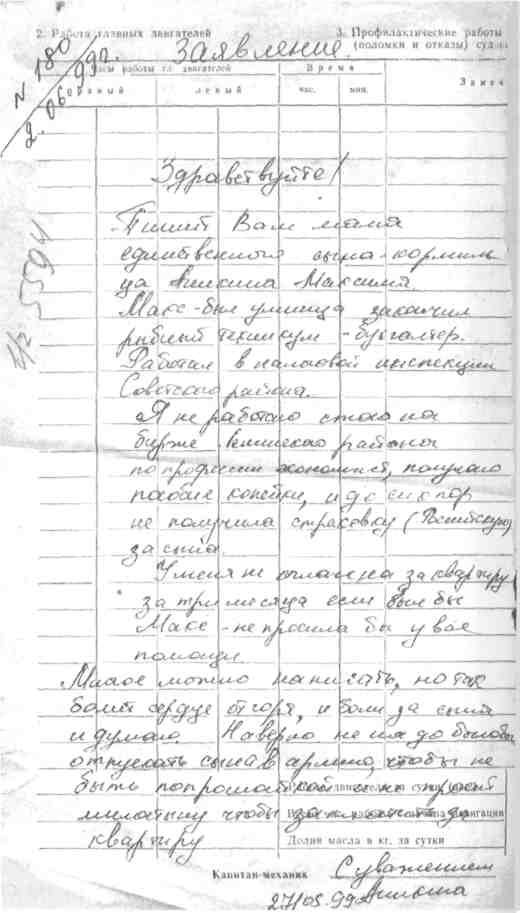 2. Работа главных двигателей
3. Профилактические работы
(поломки и отказы) суд
N 180
2.06.99г.
Заявление
Часы работы гл. двигателей
Время
правый
левый
час.
мин.
Замеч
Здравствуйте!
Пишет Вам мама
единственного сына-кормиль
ца Максима.
Макс-был умница закончил
рыбный техникум-бухгалтер.
Работал в налоговой инспекции
Советского района.
Я не работаю стою на
бирже Ленинского района
по профессии экономист, получаю
пособие копейки, и до сих пор
не получила страховку
за сына.
У меня не оплачена за квартиру
за три месяца если был бы
Макс-не просила бы у вас
помощи.
Многое можно написать, но так
болит сердце от горя, и боли за сына
и думаю. Наверно не надо было бы
отпускать сына в армию, чтобы не
быть попрошайкой и не просит
милостыну чтобы за
квартиру
Долив масла в кг. за сутки
Капитан-механик
С уважением
27/05.99г.